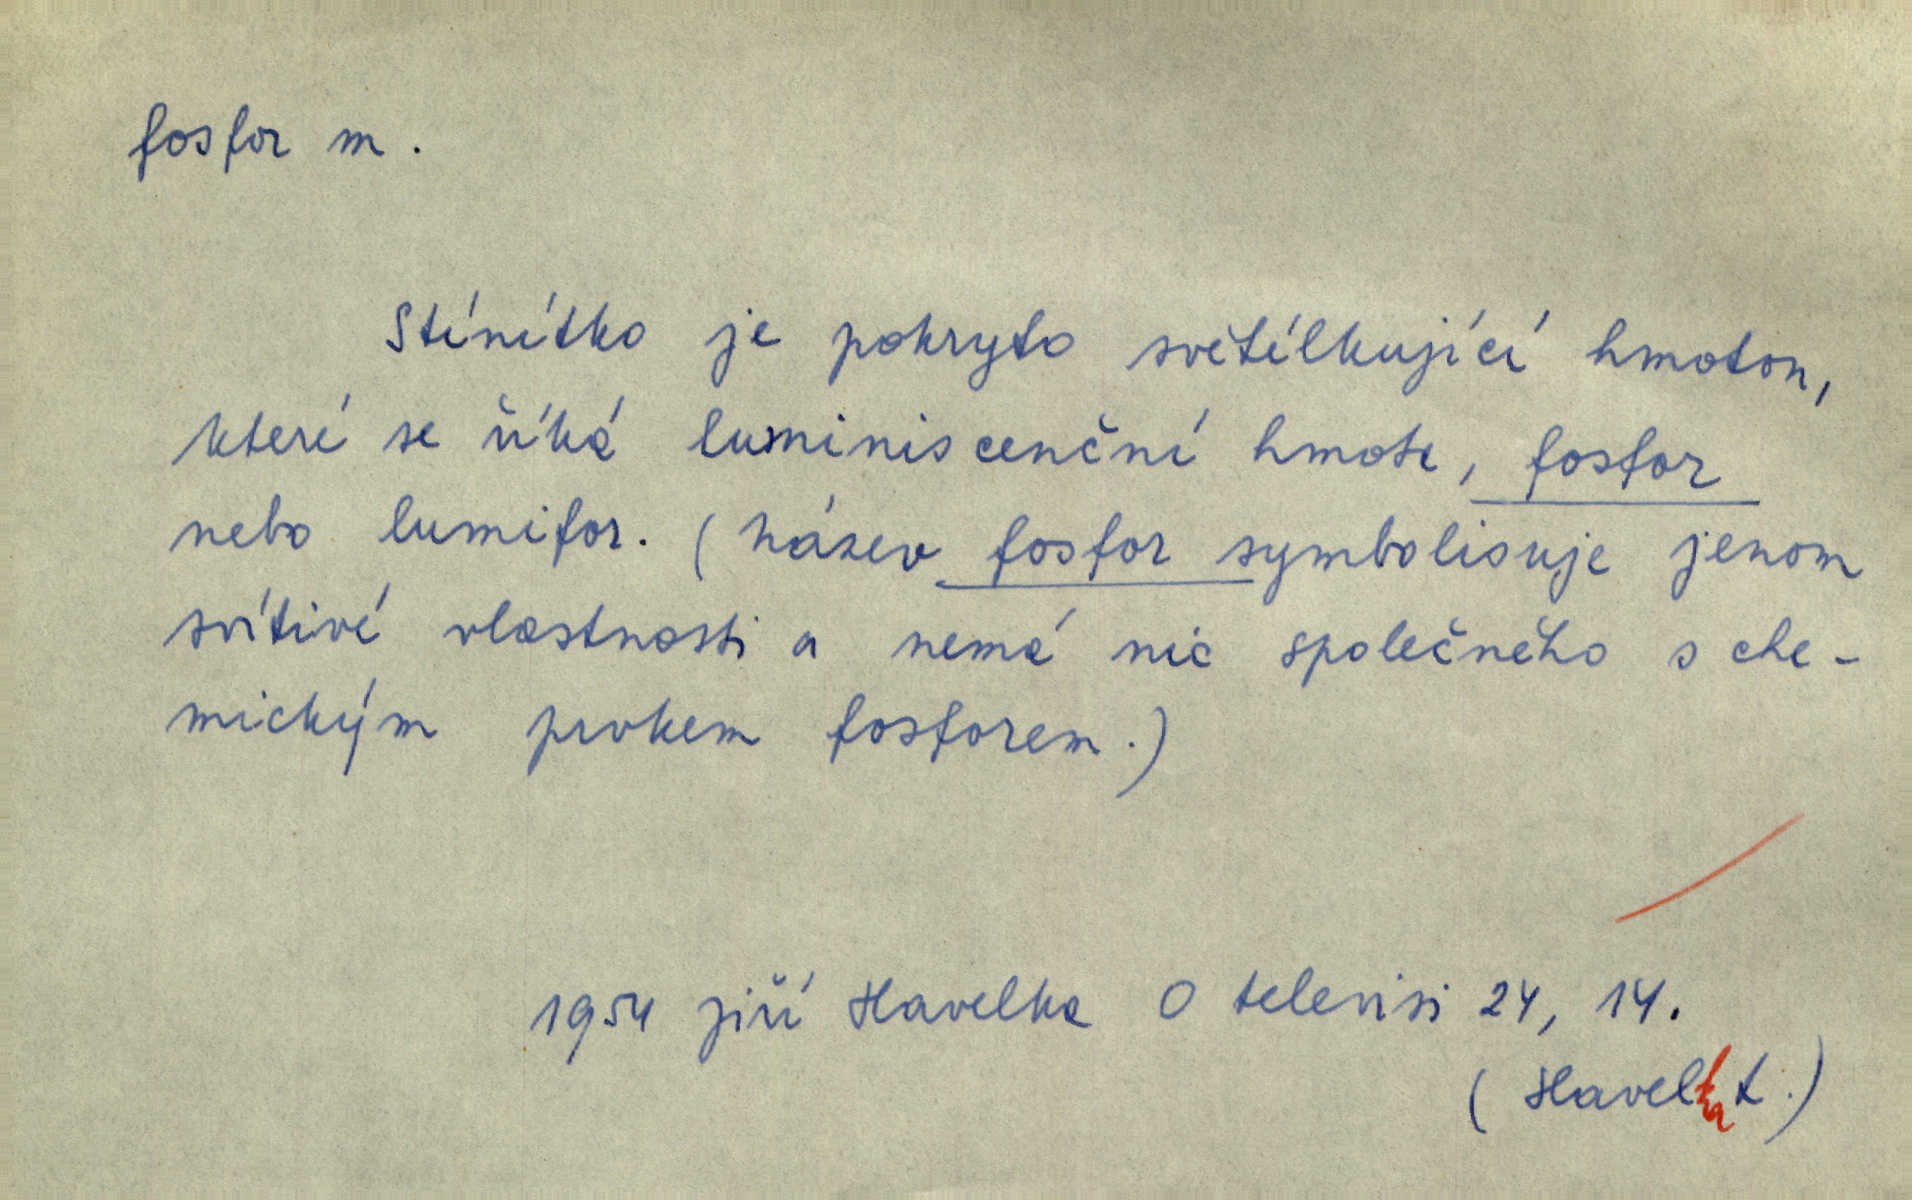 fosfor m.
Stínítko je pokryto světélkující hmotou,
které se říká luminiscenční hmota, fosfor
nebo lumifor. (Název fosfor symbolisuje jenom
svítivé vlastnosti a nemá nic společného s che-
mickým prvkem fosforem.)
1954 Jiří Havelka O televisi 24, 14.
(Havelka t.)